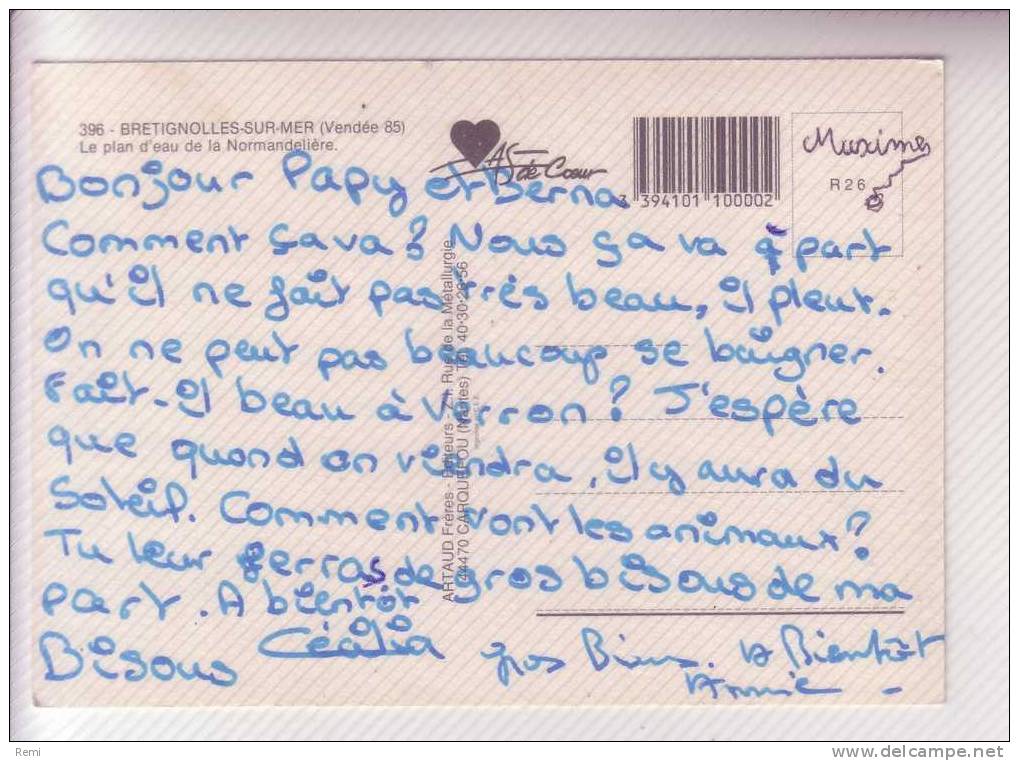 396 - BRETIGNOLLES-SUR-MER (Vendée 85)
Le plan d'eau de la Normandelière.
AS de Coeur
3 394101 100002
Maxime
R 26
Bonjour Papy et Berna
Comment ça va? Nous ça va à part
qu'il ne fait pas très beau, il pleut.
On ne peut pas beaucoup se baigner.
Fait-il beau à Verron? J'espère
que quand on viendra, il y aura du
Soleil. Comment vont les animaux?
Tu leur ferras de gros bisous de ma
part. A bientôt
Bisous Cécilia
gros Bisous. A Bientôt
Annie
ARTAUD Frères - Editeurs - Z.I. Rue de la Métallurgie
44470 CARQUEFOU (Nantes) Tél. 40-30-26-56
Remi
www.delcampe.net